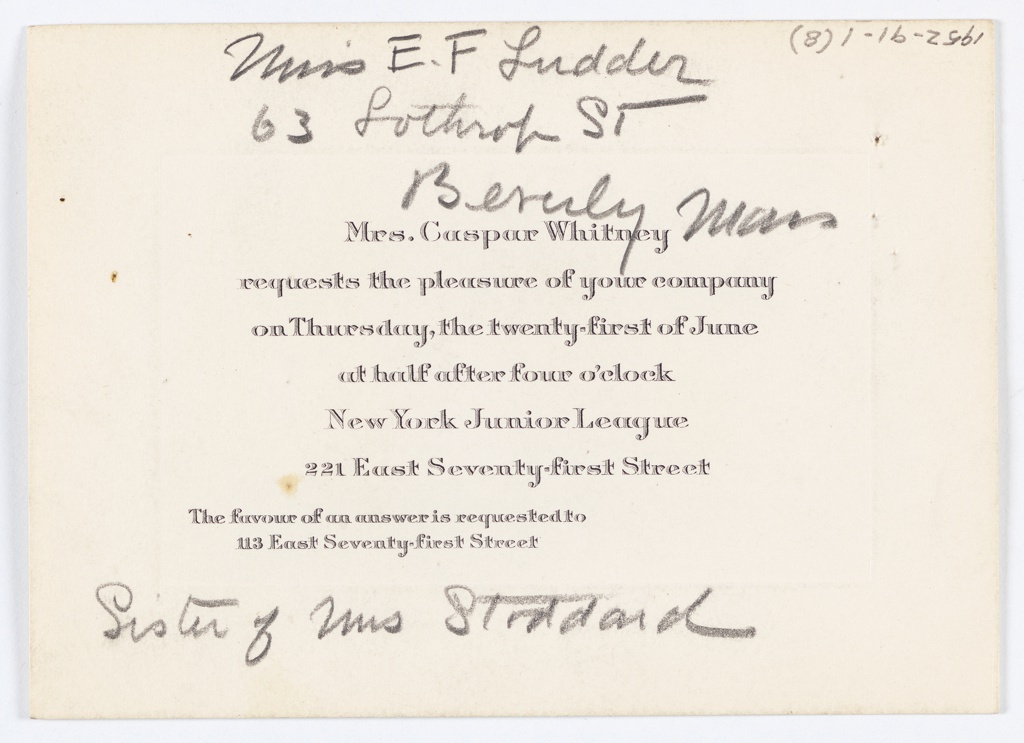 1952-91-1 (8)
Miss E.F Ludder
63 Lothrop St
Beverly Mass
Mrs. Caspar Whitney
requests the pleasure of your company
on Thursday, the twenty-first of June
at half after four o'clock
New York Junior League
221 East Seventy-first Street
The favour of an answer is requested to
113 East Seventy-first Street
Sister of Mrs Stoddard